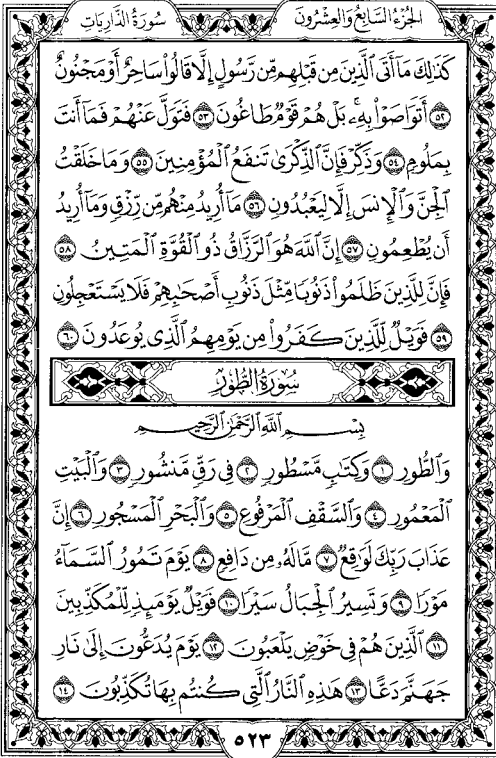 سُورَةُ الذَّارِيَاتِ
الجُزْءُ السَّابِعُ وَالعِشْرُونَ
كَذَٰلِكَ مَآ أَتَى ٱلَّذِينَ مِن قَبْلِهِم مِّن رَّسُولٍ إِلَّا قَالُوا۟ سَاحِرٌ أَوْ مَجْنُونٌ
٥٢ أَتَوَاصَوْا۟ بِهِۦ ۚ بَلْ هُمْ قَوْمٌ طَاغُونَ ٥٣ فَتَوَلَّ عَنْهُمْ فَمَآ أَنتَ
بِمَلُومٍ ٥٤ وَذَكِّرْ فَإِنَّ ٱلذِّكْرَىٰ تَنفَعُ ٱلْمُؤْمِنِينَ ٥٥ وَمَا خَلَقْتُ
ٱلْجِنَّ وَٱلْإِنسَ إِلَّا لِيَعْبُدُونِ ٥٦ مَآ أُرِيدُ مِنْهُم مِّن رِّزْقٍ وَمَآ أُرِيدُ
أَن يُطْعِمُونِ ٥٧ إِنَّ ٱللَّهَ هُوَ ٱلرَّزَّاقُ ذُو ٱلْقُوَّةِ ٱلْمَتِينُ ٥٨
فَإِنَّ لِلَّذِينَ ظَلَمُوا۟ ذَنُوبًا مِّثْلَ ذَنُوبِ أَصْحَٰبِهِمْ فَلَا يَسْتَعْجِلُونِ
٥٩ فَوَيْلٌ لِّلَّذِينَ كَفَرُوا۟ مِن يَوْمِهِمُ ٱلَّذِى يُوعَدُونَ ٦٠
سُورَةُ الطُّورِ
بِسْمِ ٱللَّهِ ٱلرَّحْمَٰنِ ٱلرَّحِيمِ
وَٱلطُّورِ ١ وَكِتَٰبٍ مَّسْطُورٍ ٢ فِى رَقٍّ مَّنشُورٍ ٣ وَٱلْبَيْتِ
ٱلْمَعْمُورِ ٤ وَٱلسَّقْفِ ٱلْمَرْفُوعِ ٥ وَٱلْبَحْرِ ٱلْمَسْجُورِ ٦ إِنَّ
عَذَابَ رَبِّكَ لَوَٰقِعٌ ٧ مَّا لَهُۥ مِن دَافِعٍ ٨ يَوْمَ تَمُورُ ٱلسَّمَآءُ
مَوْرًا ٩ وَتَسِيرُ ٱلْجِبَالُ سَيْرًا ١٠ فَوَيْلٌ يَوْمَئِذٍ لِّلْمُكَذِّبِينَ
١١ ٱلَّذِينَ هُمْ فِى خَوْضٍ يَلْعَبُونَ ١٢ يَوْمَ يُدَعُّونَ إِلَىٰ نَارِ
جَهَنَّمَ دَعًّا ١٣ هَٰذِهِ ٱلنَّارُ ٱلَّتِى كُنتُم بِهَا تُكَذِّبُونَ ١٤
٥٢٣